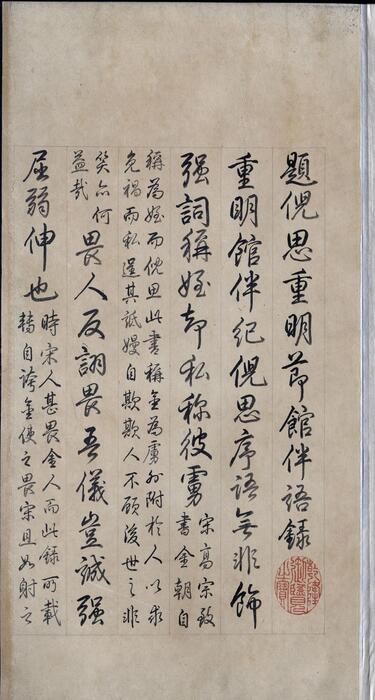 題倪思重明節館伴語錄
乾隆御覽之寶
重明館伴紀倪思序語無非飾
强詞稱姪却私稱彼虜
宋高宗致
書金朝自
稱為姪而倪思此書稱金為虜外附於人以求
免禍而私逞其詆嫚自欺欺人不顧後世之非
笑亦何
益哉
畏人反詡畏吾儀豈誠强
屈弱伸也
時宋人甚畏金人而此錄所載
轉自誇金使之畏宋且如射之